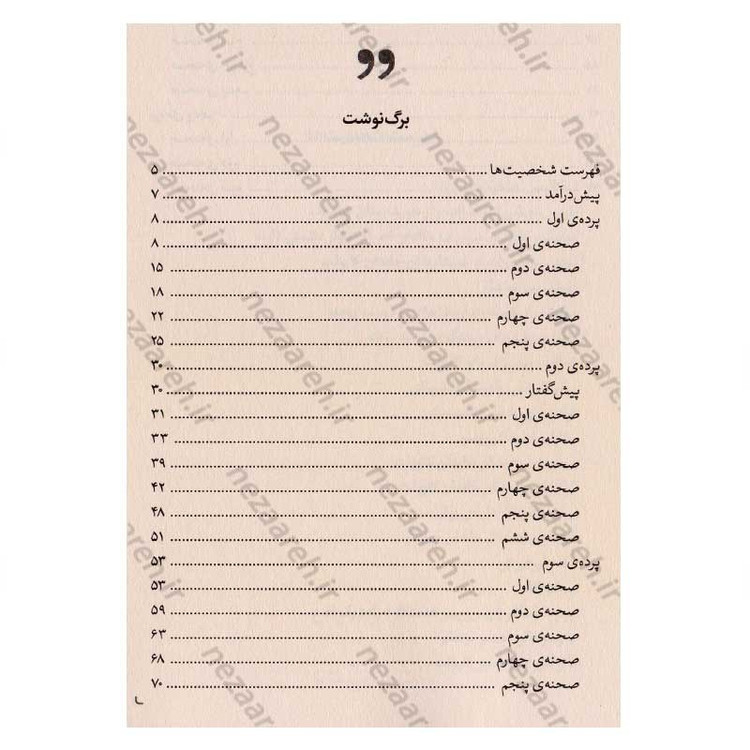 برگ‌نوشت
فهرست شخصیت‌ها ........ ۵
پیش‌درآمد ........ ۷
پرده‌ی اول ........ ۸
صحنه‌ی اول ........ ۸
صحنه‌ی دوم ........ ۱۵
صحنه‌ی سوم ........ ۱۸
صحنه‌ی چهارم ........ ۲۲
صحنه‌ی پنجم ........ ۲۵
پرده‌ی دوم ........ ۳۰
پیش‌گفتار ........ ۳۰
صحنه‌ی اول ........ ۳۱
صحنه‌ی دوم ........ ۳۳
صحنه‌ی سوم ........ ۳۹
صحنه‌ی چهارم ........ ۴۲
صحنه‌ی پنجم ........ ۴۸
صحنه‌ی ششم ........ ۵۱
پرده‌ی سوم ........ ۵۳
صحنه‌ی اول ........ ۵۳
صحنه‌ی دوم ........ ۵۹
صحنه‌ی سوم ........ ۶۳
صحنه‌ی چهارم ........ ۶۸
صحنه‌ی پنجم ........ ۷۰
nezaareh.ir